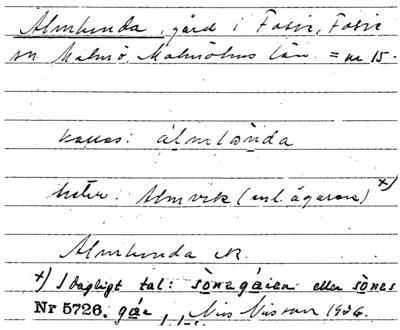 Almlunda, gård i Fosie, Fosie
sn Malmö, Malmöhus län. = nr 15.
kallas: álmlọ̀nda
heter: Almvik (enl. ägaren) x)
Almlunda N.
x) I dagligt tal: sònegǻien eller sònes
Nr 5726. gå̀r, Nils Nilsson 1926.